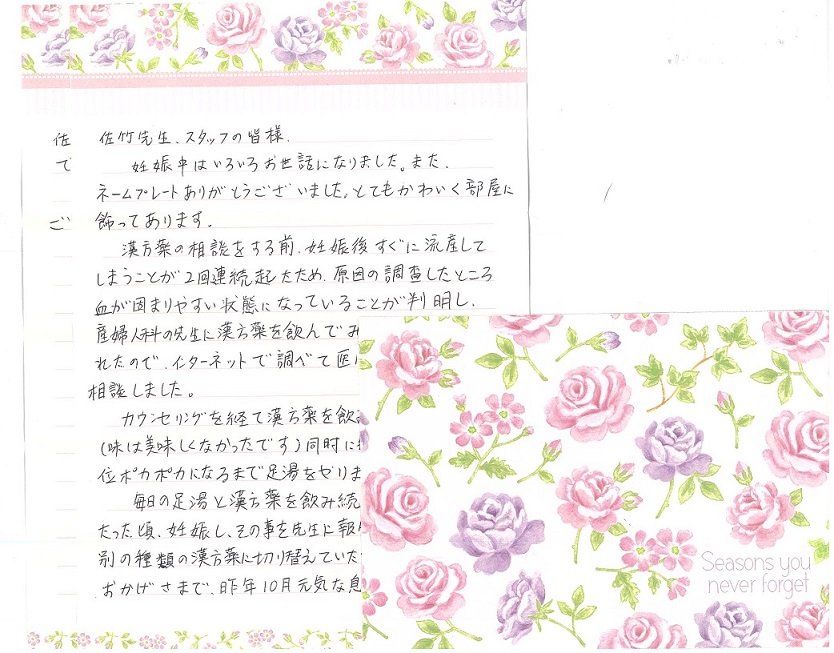 佐 佐竹先生、スタッフの皆様、
で 妊娠中はいろいろお世話になりました。また、
ネームプレートありがとうございました。とてもかわいく部屋に
ご 飾ってあります。
漢方薬の相談をする前、妊娠後すぐに流産して
しまうことが2回連続起きたため、原因の調査したところ
血が固まりやすい状態になっていることが判明し、
産婦人科の先生に漢方薬を飲んでみ
れたので、インターネットで調べて
相談しました。
カウンセリングを経て漢方薬を飲み
(味は美味しくなかったです)同時に
位ポカポカになるまで足湯をやりま
毎日の足湯と漢方薬を飲み続
たった頃、妊娠し、その事を先生に報
別の種類の漢方薬に切り替えていた
おかげさまで、昨年10月元気な息
Seasons you
never forget